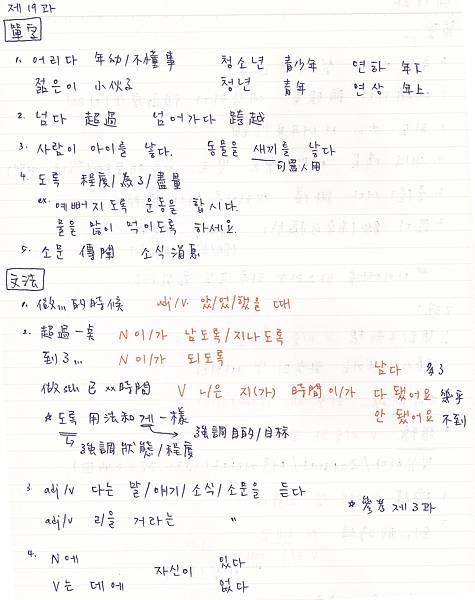 제 19 과
單字
1. 어리다 年幼/不懂事 청소년 青少年 연하 年下
젊은이 小伙子 청년 青年 연상 年上.
2. 넘다 超過 넘어가다 跨越
3. 사람이 아이를 낳다. 동물을 새끼를 낳다
可罵人用
4. 도록 程度/為了/盡量
ex. 예뻐지도록 운동을 합시다.
물을 많이 먹이도록 하세요.
5. 소문 傳聞 소식 消息
文法
1. 做...的時候 adj/v. 았/었/했을 때
2. 超過一束 N 이/가 넘도록/지나도록
到了... N 이/가 되도록
남다 多了
做sth 已 xx時間 V 니/은 지(가) 時間이/가 다 됐어요 幾乎
안 됐어요 不到
☆도록 用法和게一樣
→強調目的/目標
→強調狀態/程度
3. adj/v 다는 말/얘기/소식/소문을 듣다
adj/v 리을 거라는 〃
☆參考 제 3 과
4. N 에
자신이 있다
V는 데에
없다